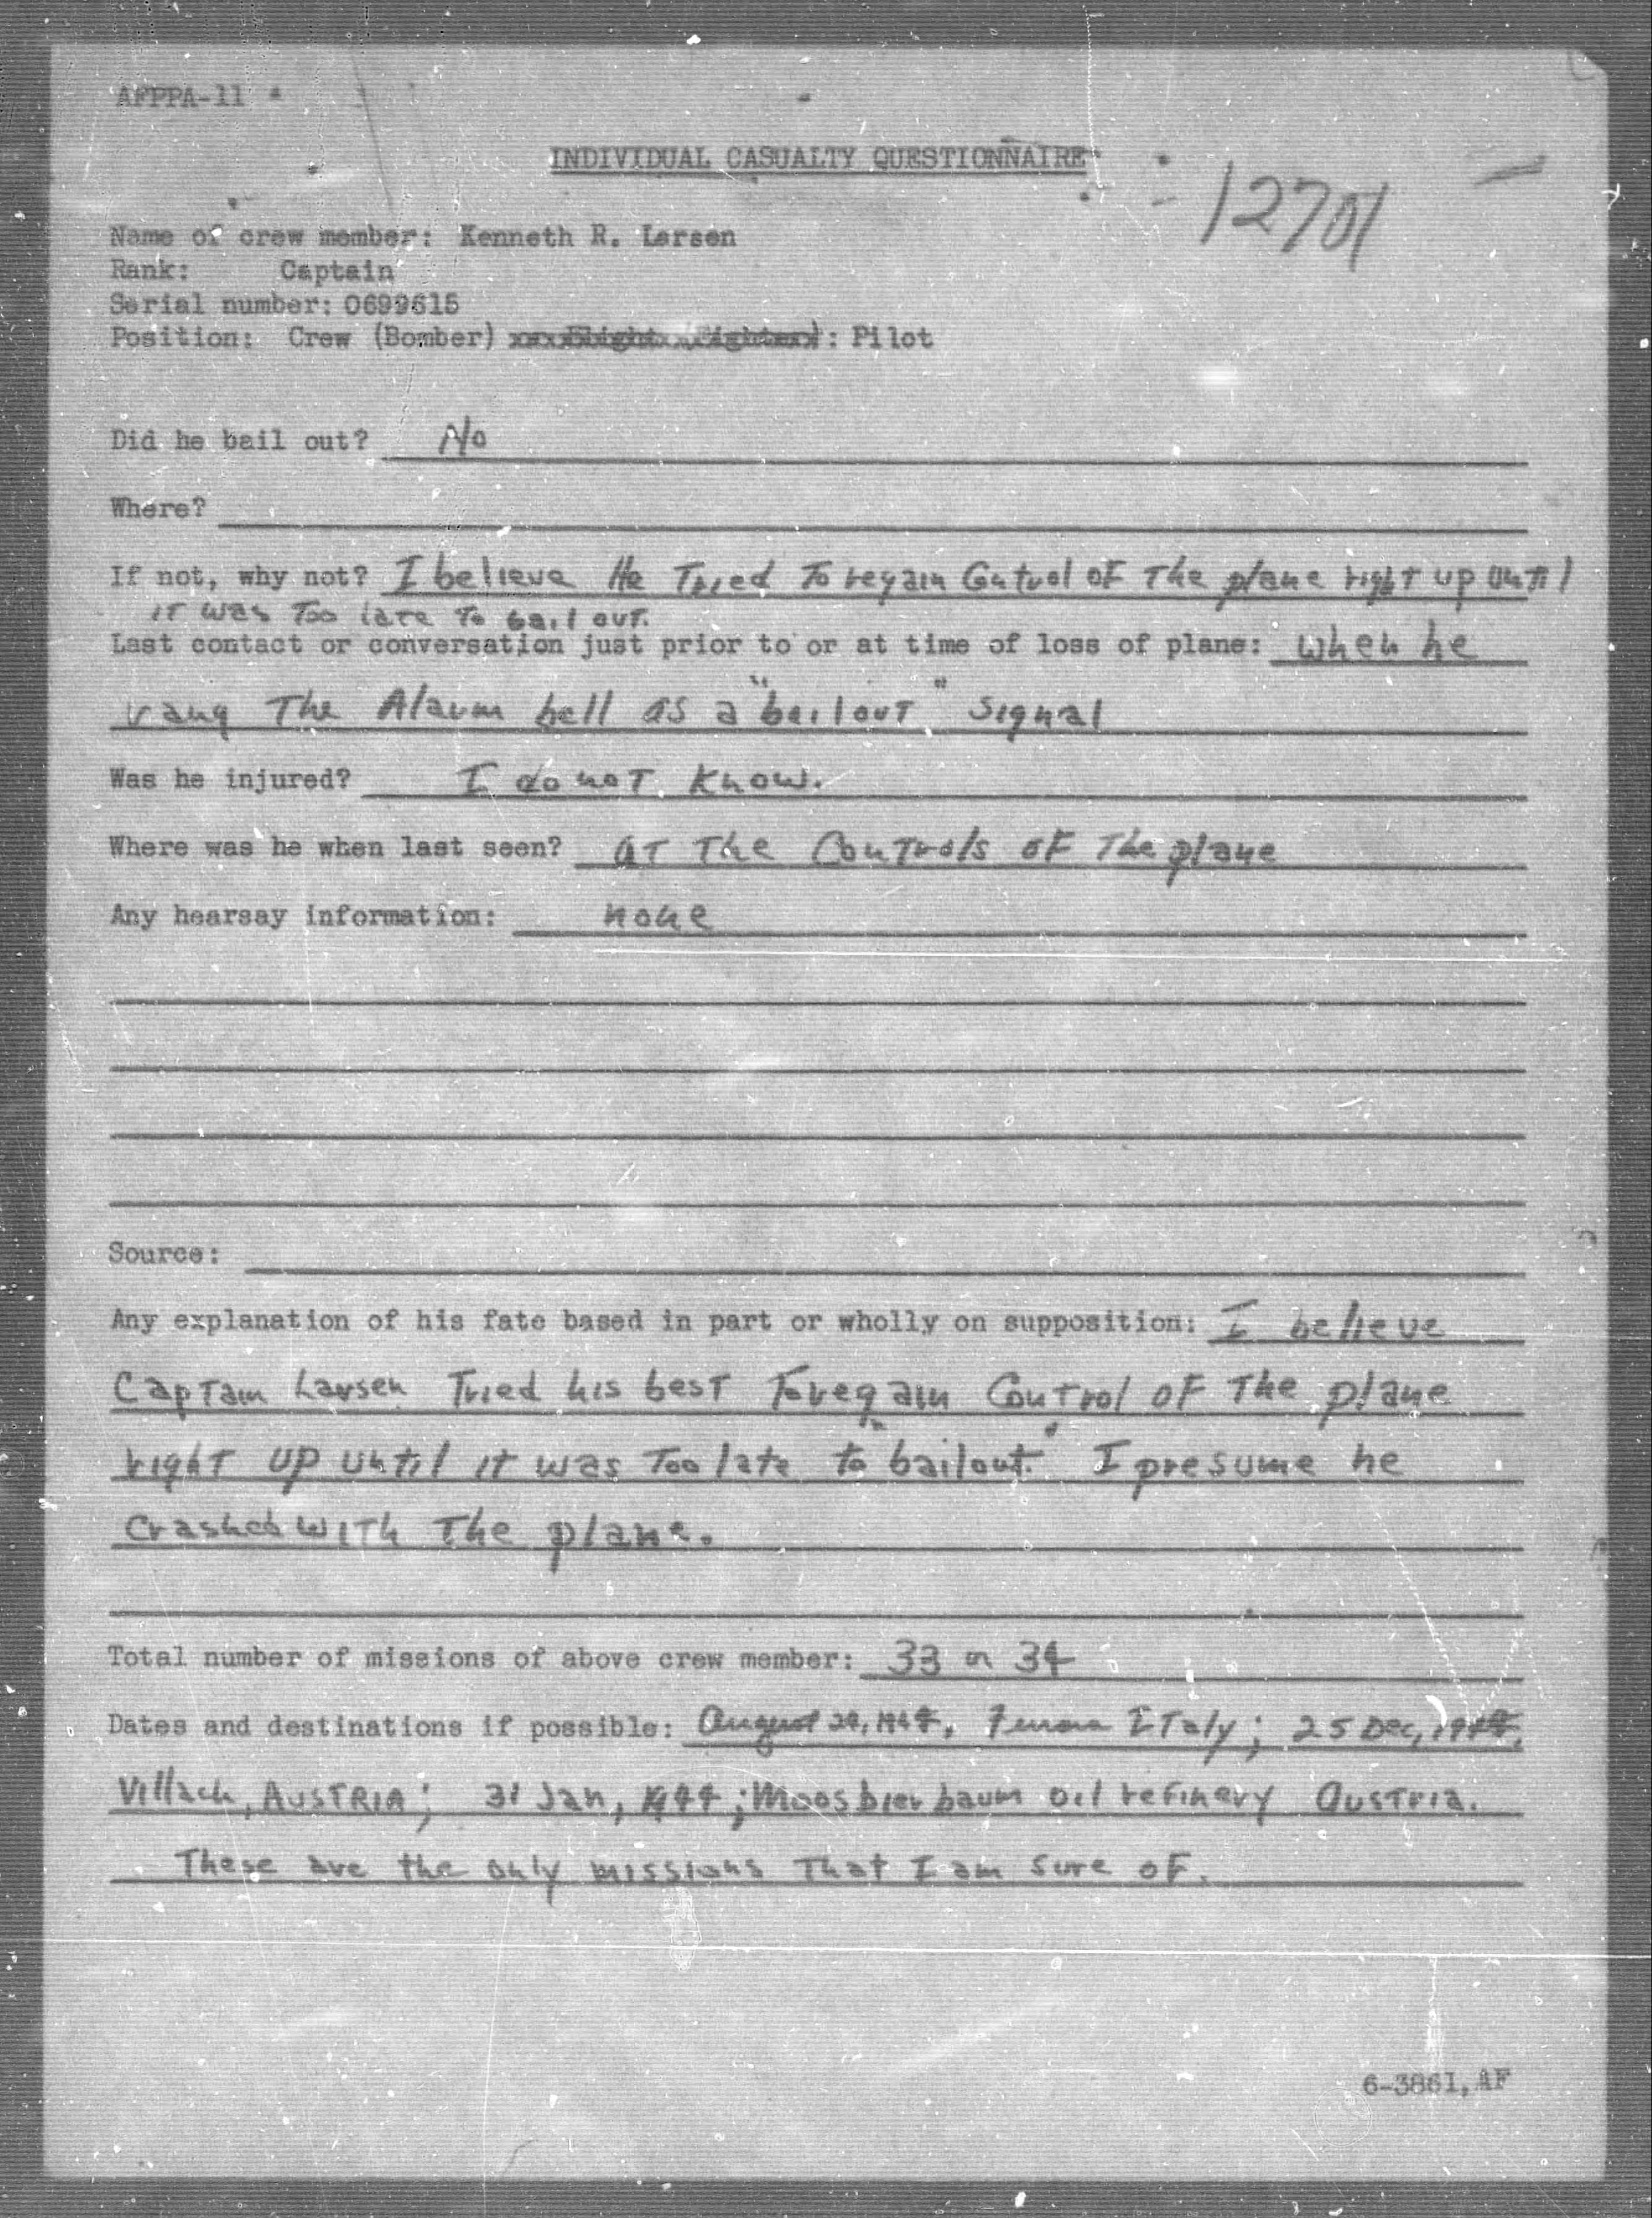 AFPPA-11
INDIVIDUAL CASUALTY QUESTIONNAIRE
12701
Name of crew member: Kenneth R. Larsen
Rank: Captain
Serial number: 0699615
Position: Crew (Bomber) : Pilot
Did he bail out? No
Where?
If not, why not? I believe He Tried To regain Control OF The plane right up until
it was Too late To bail out.
Last contact or conversation just prior to or at time of loss of plane: when he
rang The Alarm bell as a "bailout" signal
Was he injured? I do not know.
Where was he when last seen? at The Controls OF The plane
Any hearsay information: none
Source:
Any explanation of his fate based in part or wholly on supposition: I believe
Captain Larsen Tried his best To regain Control OF The plane
right up until it was Too late to "bailout." I presume he
crashed with The plane.
Total number of missions of above crew member: 33 or 34
Dates and destinations if possible: August 1944, Italy; 25 Dec, 1944,
Villach, AUSTRIA; 31 Jan, 1944; Moosbierbaum oil refinery Austria.
These are the only missions That I am sure of.
6-3861, AF